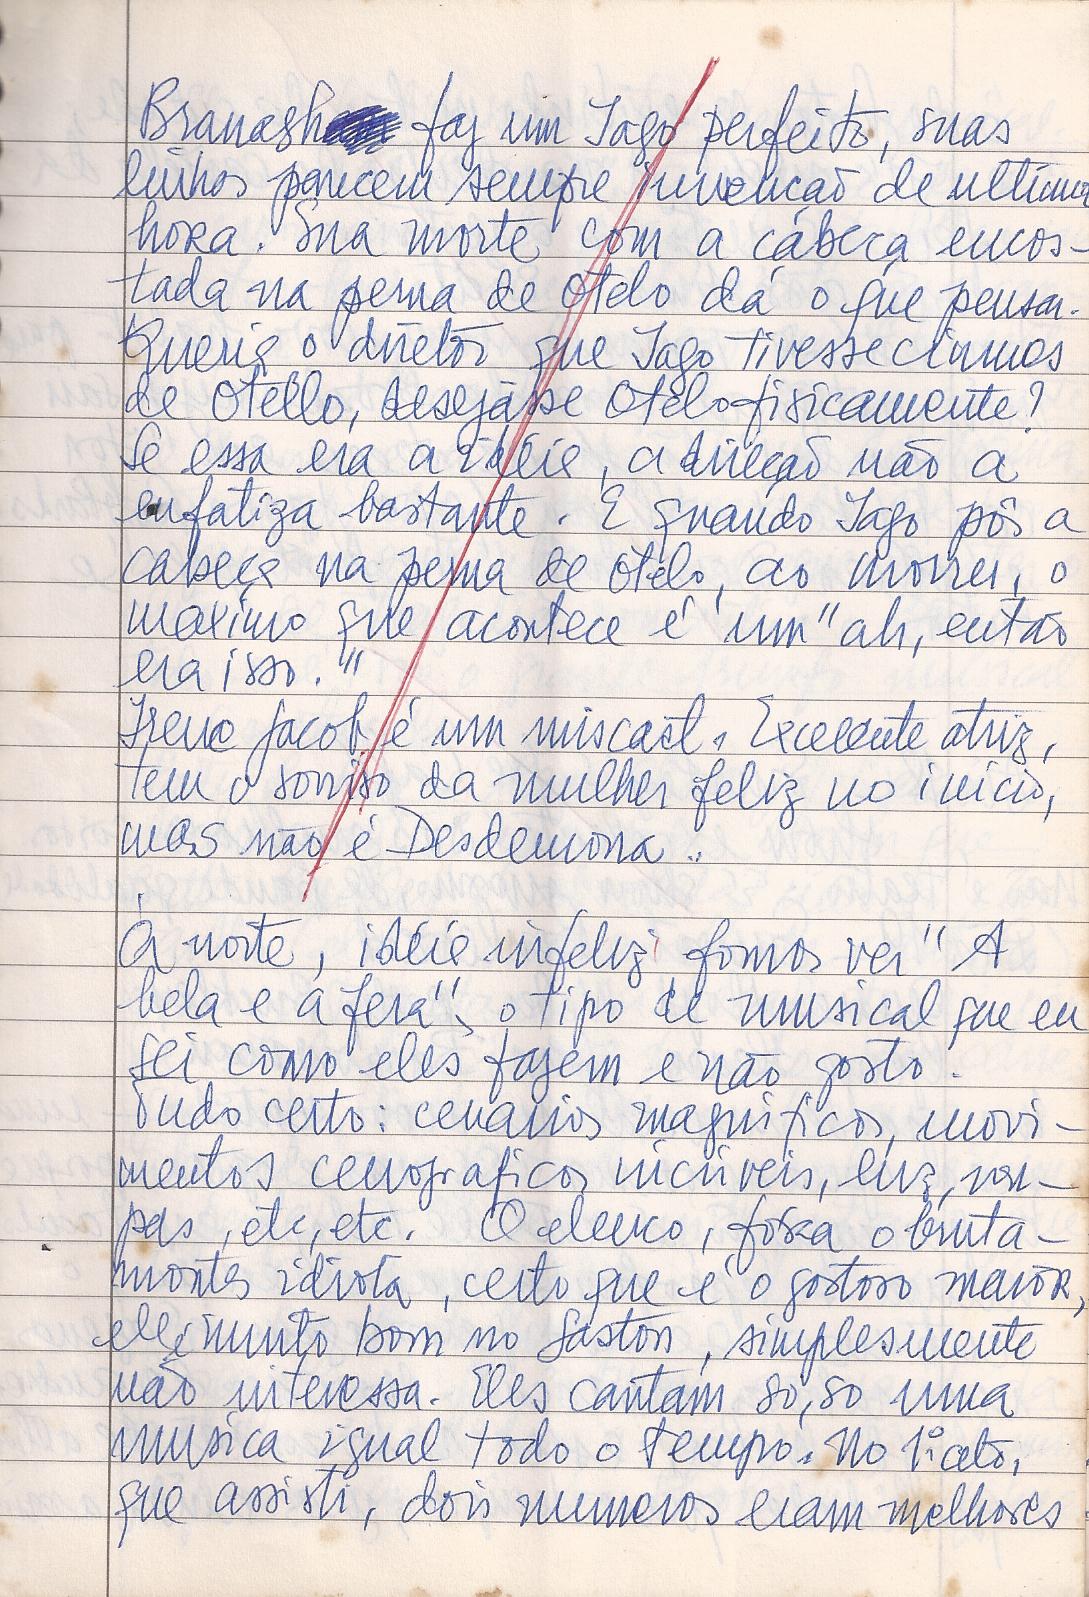 Branagh faz um Iago perfeito, suas
linhas parecem sempre invenção de ultima
hora. Sua morte com a cabeça encos-
tada na perna de Otelo dá o que pensar.
Queria o diretor que Iago tivesse ciumes
de Otello, desejasse Otelo fisicamente?
Se essa era a idéia, a direção não a
enfatiza bastante. E quando Iago pôs a
cabeça na perna de Otelo, ao morrer, o
maximo que acontece é um "ah, então
era isso."
Irene Jacob é um miscast. Excelente atriz,
tem o sorriso da mulher feliz no inicio,
mas não é Desdemona..
À noite, idéia infeliz fomos ver "A
bela e a fera", o tipo de musical que eu
sei como eles fazem e não gosto.
Tudo certo: cenarios magnificos, movi-
mentos cenograficos incriveis, luz, rou-
pas, etc, etc. O elenco, fora o bruta-
montes idiota, certo que é o gostoso maior,
ele é muito bom no Gaston, simplesmente
não interessa. Eles cantam só, só uma
musica igual todo o tempo. No 1º ato,
que assisti, dois numeros eram melhores